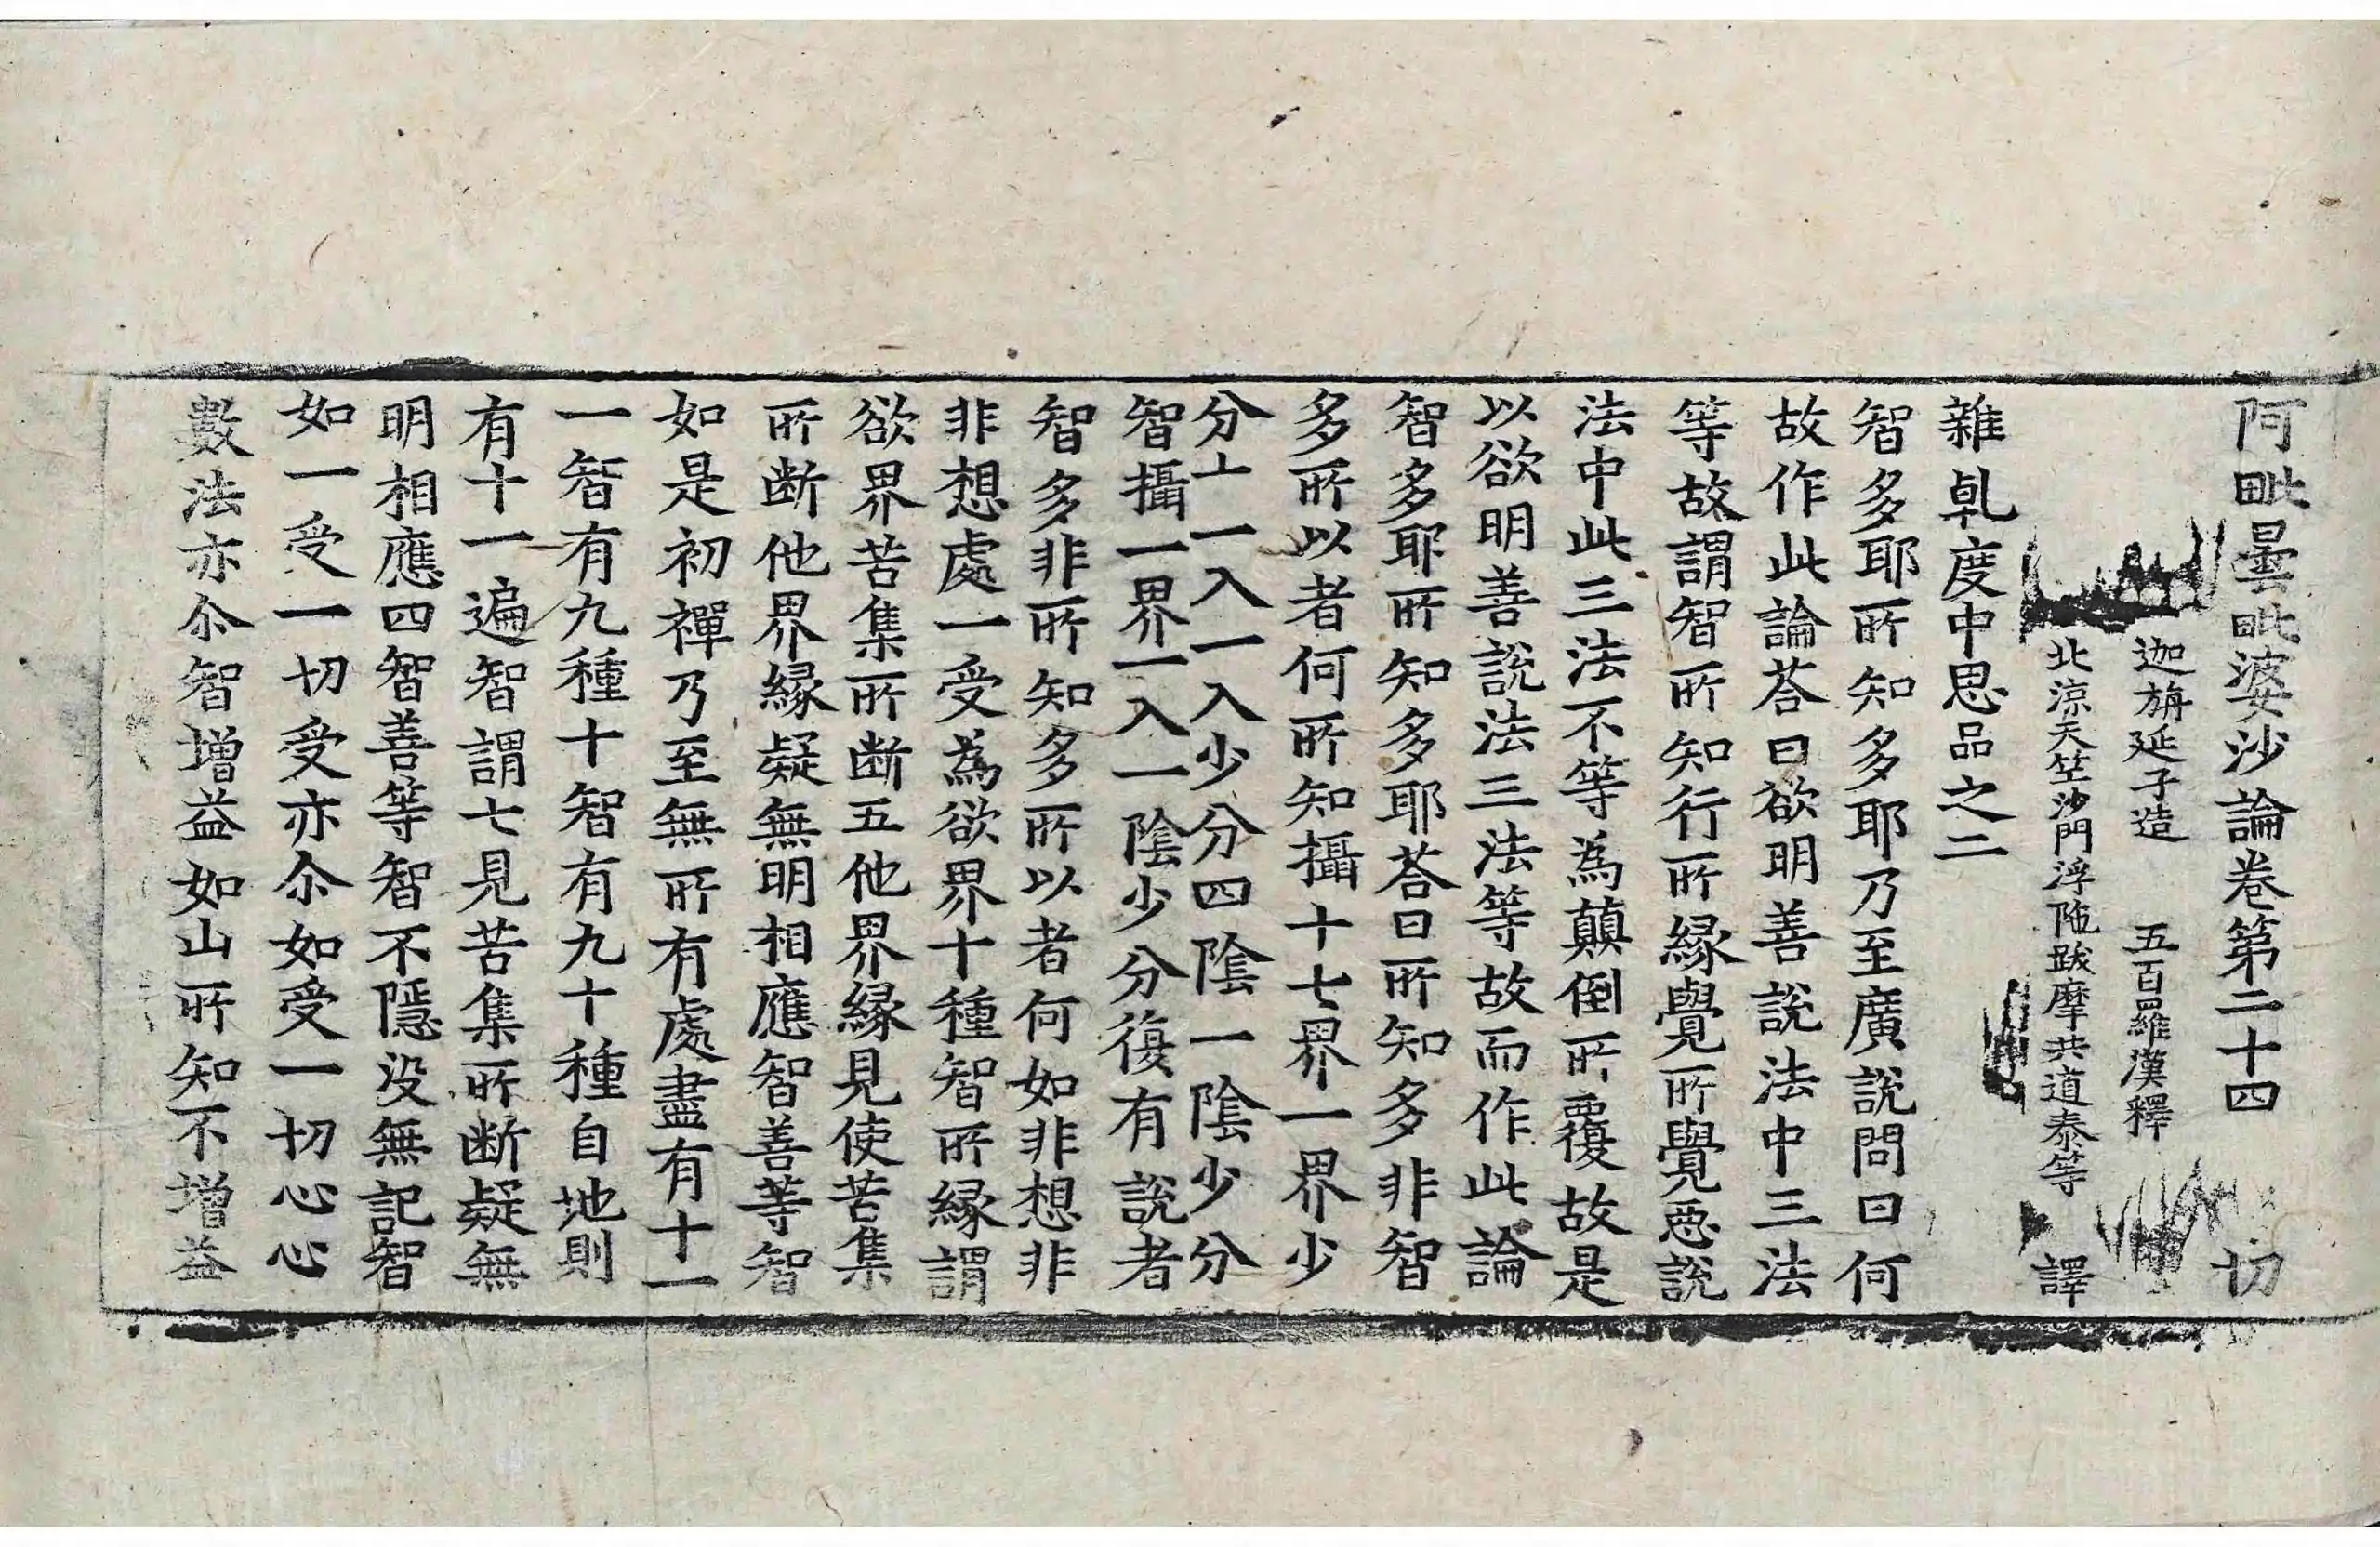 阿毗曇毗婆沙論卷第二十四 切
迦旃延子造 五百羅漢釋
北涼天竺沙門浮陁跋摩共道泰等 譯
雜乹度中思品之二
智多耶所知多耶乃至廣說問曰何
故作此論荅曰欲明善說法中三法
等故謂智所知行所縁覺所覺惡說
法中此三法不等為顛倒所覆故是
以欲明善說法三法等故而作此論
智多耶所知多耶荅曰所知多非智
多所以者何所知攝十七界一界少
分十一入一入少分四陰一陰少分
智攝一界一入一陰少分復有說者
智多非所知多所以者何如非想非
非想處一受為欲界十種智所縁謂
欲界苦集所断五他界縁見使苦集
所断他界縁疑無明相應智善等智
如是初禪乃至無所有處盡有十一
一智有九種十智有九十種自地則
有十一遍智謂七見苦集所断疑無
明相應四智善等智不隱没無記智
如一受一切受亦尒如受一切心心
數法亦尒智増益如山所知不増益